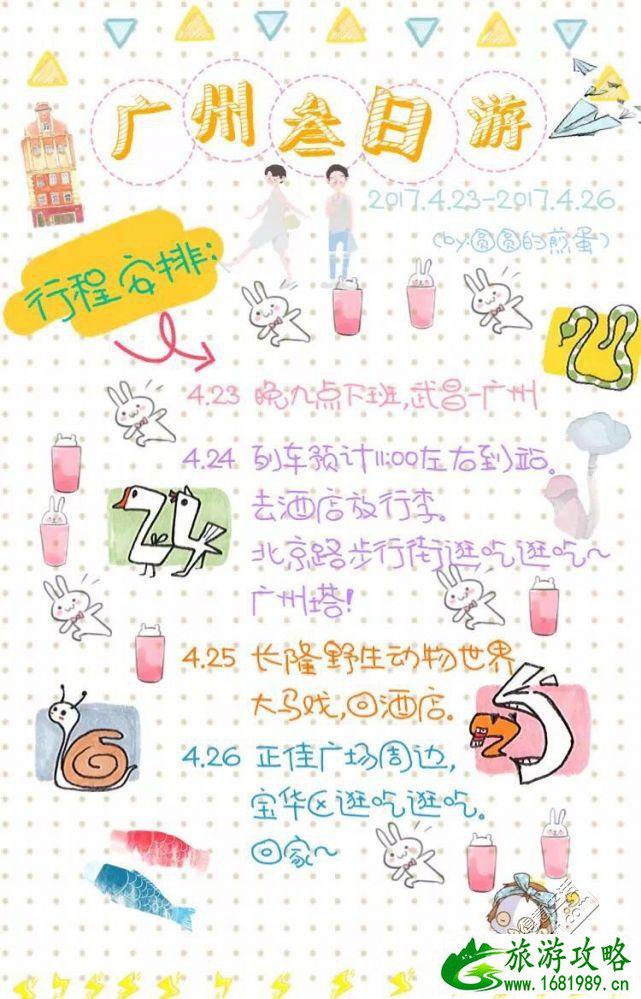 广州叁日游
2017.4.23-2017.4.26
(by:圆圆的煎蛋)
行程安排:
4.23 晚九点下班,武昌-广州
4.24 列车预计11:00左右到站。
去酒店放行李。
北京路步行街逛吃逛吃~
广州塔!
4.25 长隆野生动物世界
大马戏,回酒店。
4.26 正佳广场周边,
宝华区逛吃逛吃。
回家~
旅游攻略
www.1681989.cn